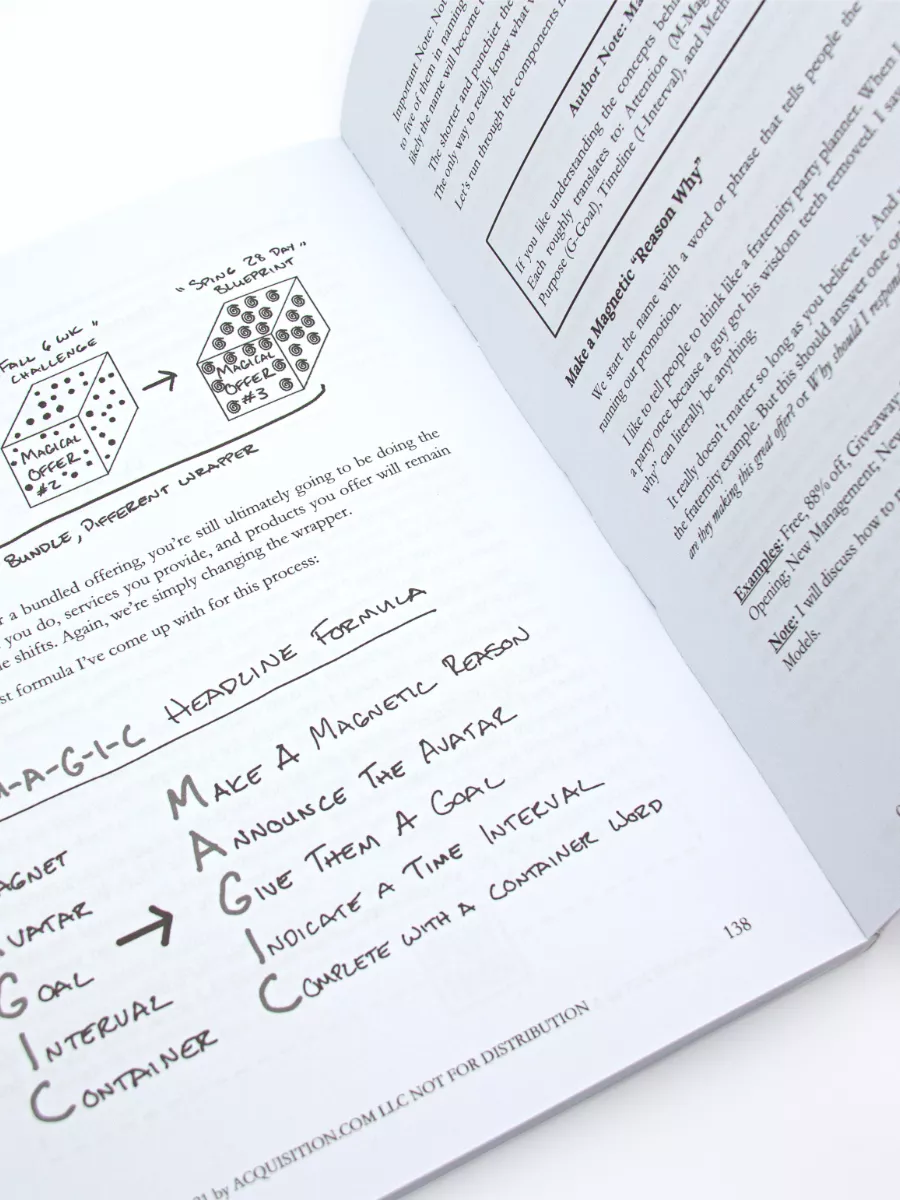 "SPING 28 DAY"
BLUEPRINT
FALL 6 WK"
CHALLENGE
MAGICAL
OFFER
#2
MAGICAL
OFFER
#3
BUNDLE, DIFFERENT WRAPPER
a bundled offering, you're still ultimately going to be doing the
you do, services you provide, and products you offer will remain
shifts. Again, we're simply changing the wrapper.
formula I've come up with for this process:
M-A-G-I-C HEADLINE FORMULA
AGNET
VATAR
GOAL
INTERVAL
CONTAINER
MAKE A MAGNETIC REASON
ANNOUNCE THE AVATAR
GIVE THEM A GOAL
INDICATE A TIME INTERVAL
COMPLETE WITH A CONTAINER WORD
138
by ACQUISITION.COM LLC NOT FOR DISTRIBUTION
Important Note: Not
to five of them in naming
likely the name will become
The shorter and punchier the
The only way to really know what
Let's run through the components
Author Note:
If you like understanding the concepts
Each roughly translates to: Attention
Purpose (G-Goal), Timeline (I-Interval), and
Make a Magnetic "Reason Why"
We start the name with a word or phrase that tells people the
running our promotion.
I like to tell people to think like a fraternity party planner. When I
a party once because a guy got his wisdom teeth removed. I
why" can literally be anything.
It really doesn't matter so long as you believe it. And
the fraternity example. But this should answer one
are they making this great offer? or Why should I respond
Examples: Free, 88% off, Giveaway
Opening: New Management, New
Note: I will discuss how to
Models.